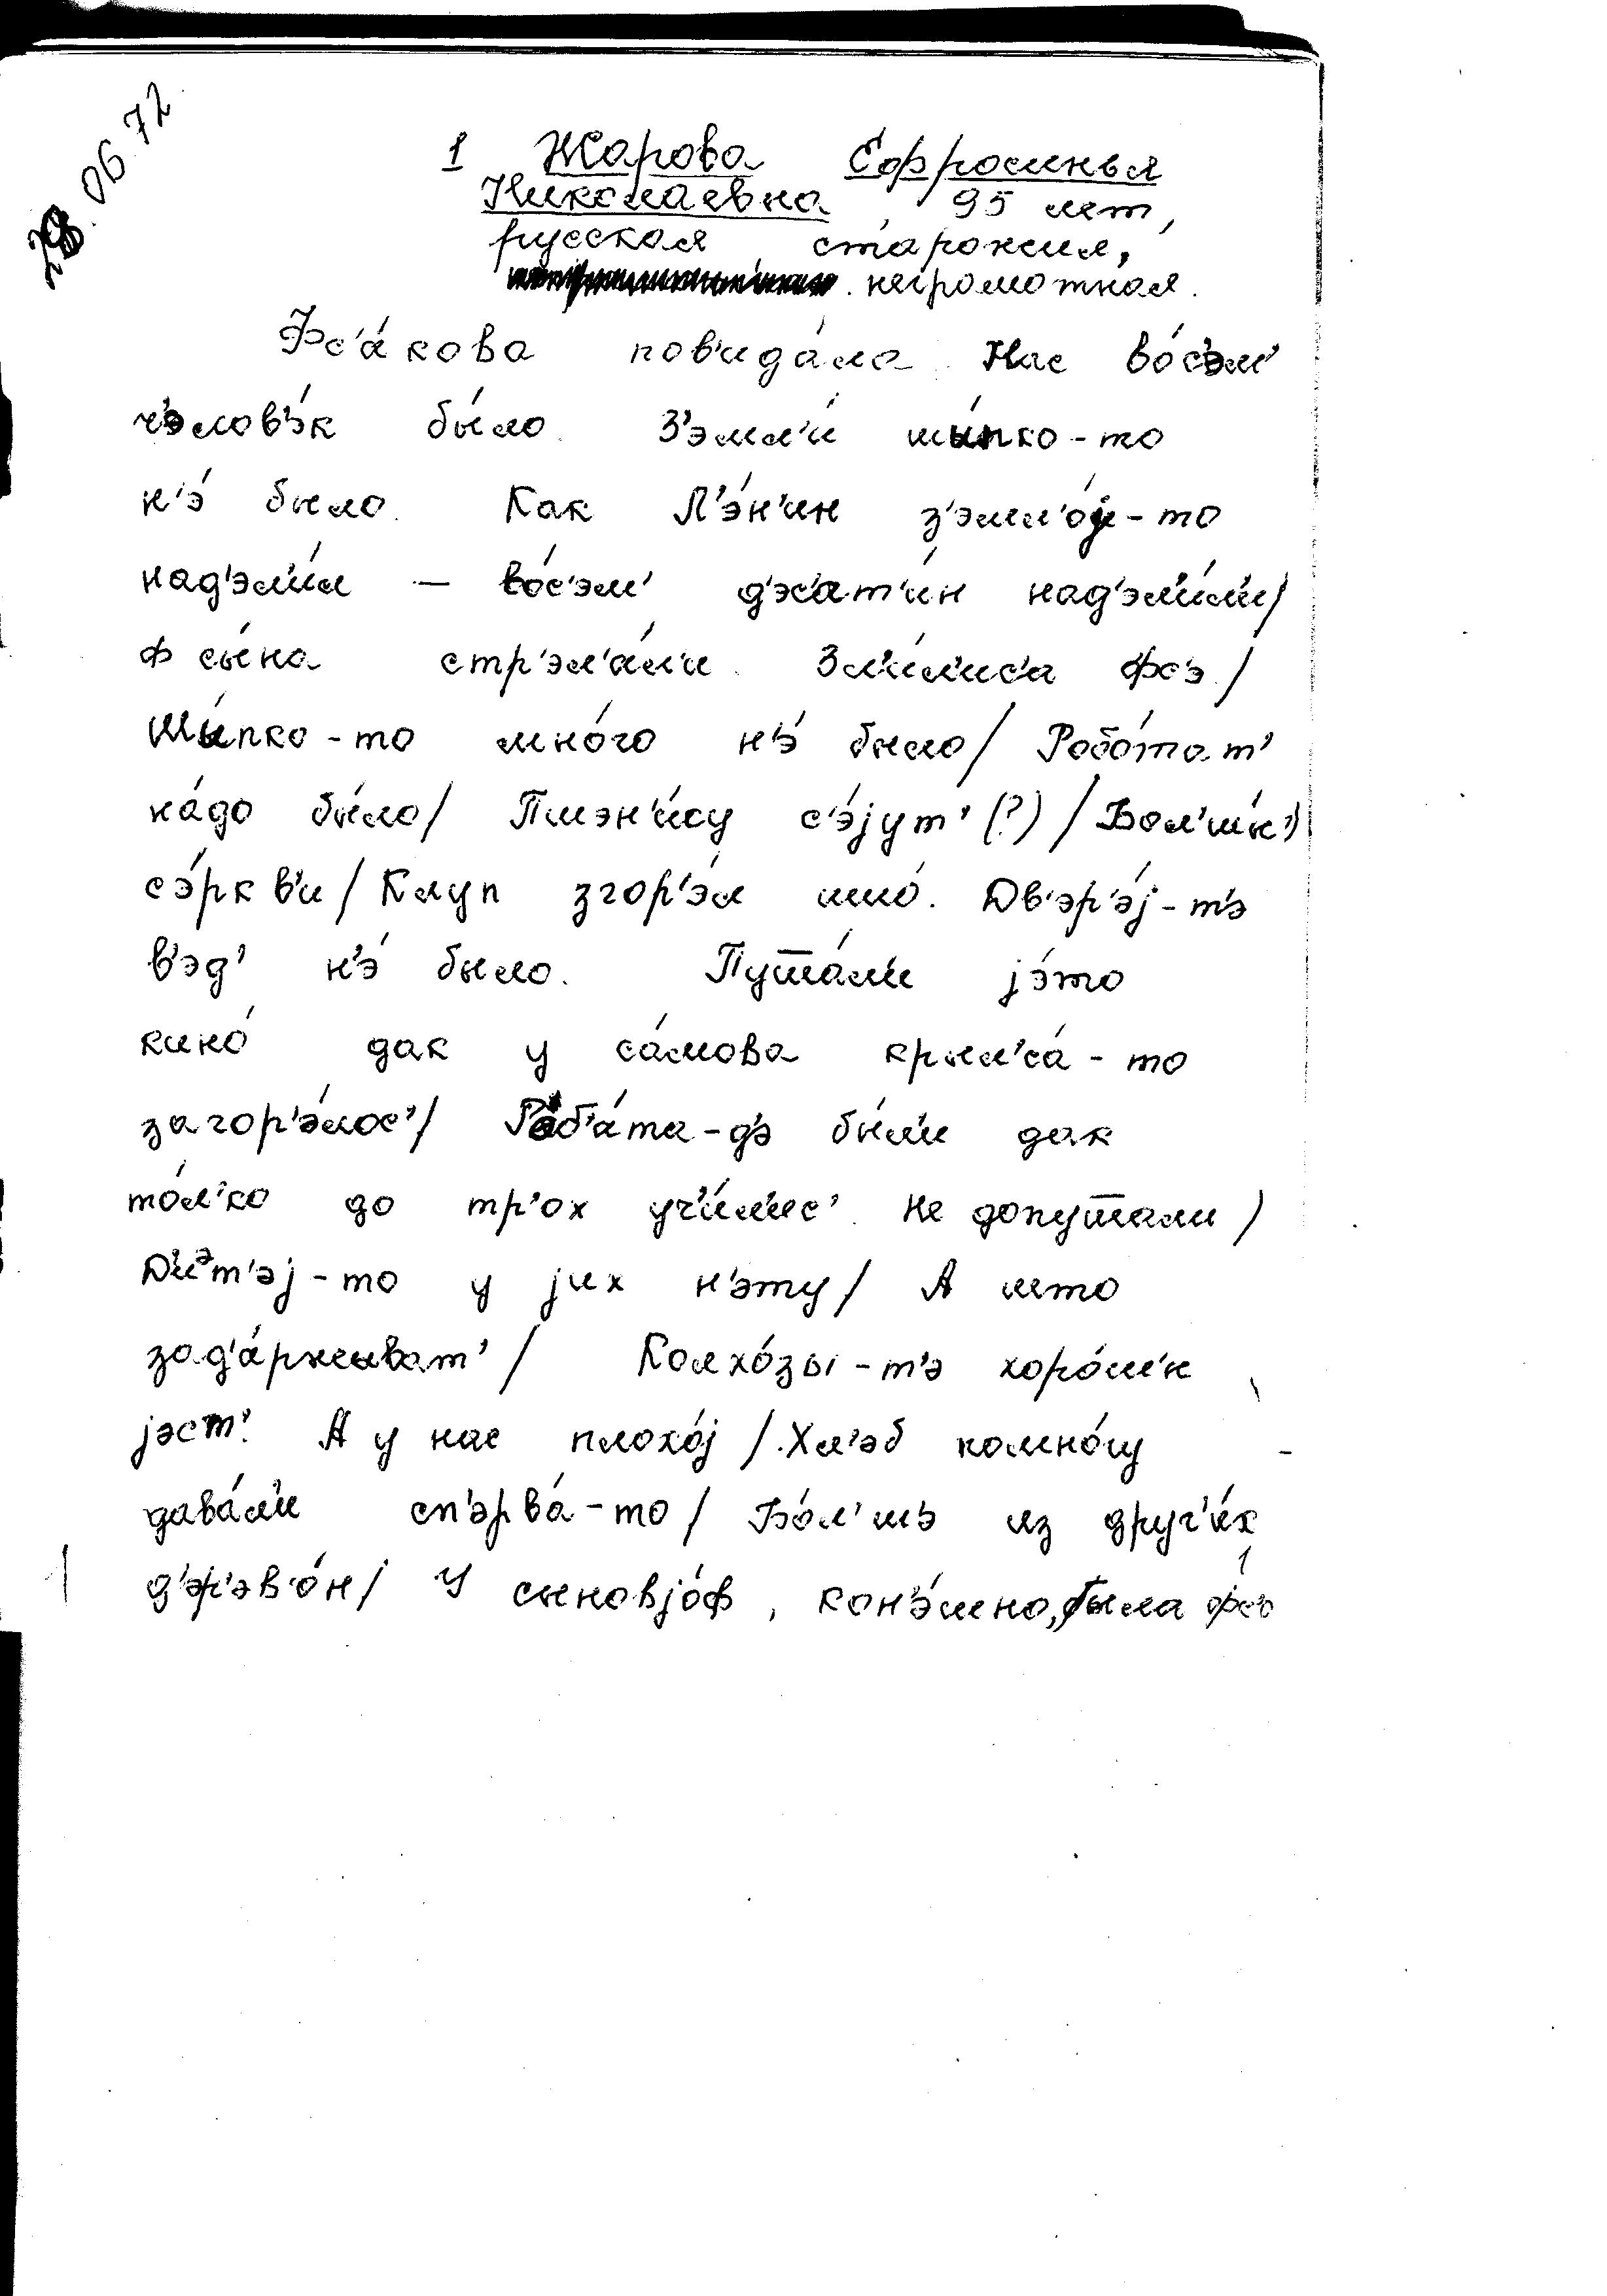 28.06.72
1 Жарова Ефросинья
Николаевна, 95 лет,
русская старожил,
неграмотная.
Фс'а́кова пов'ида́ла. Нас во́с'эм'
ч'элов'э́к бы́ло. З'эмл'и́ шы́пко-то
н'э́ было. Как Л'э́н'ин з'эмл'о́j-то
над'эл'и́л — во́с'эм' д'эс'ат'и́н над'эл'и́л'и/
ф сы́на стр'эл'а́л'и. Зл'и́л'ис'а фс'э/
Шы́пко-то мно́го н'э́ было/ Робо́тат'
на́до бы́ло/ Пшэн'и́су с'э́jут' (?) / Бол'шы́н'
сэ́ркв'и/ Клуп згор'э́л ишо́. Дв'эр'э́j-т'э
в'эд' н'э́ было. Пуш̅а́л'и jэ́то
кино́ дак у са́мова крыл'са́-то
загор'э́лос'/ Роб'а́та-д'э бы́л'и дак
то́л'ко до тр'ох уч'и́л'ис'. Не допуш̅али/
Д'иэт'эj-то у jих н'эту/ А што
зад'а́ржыват'/ Колхо́зы-т'э хоро́шы
jэст'. А у нас плохо́j/. Хл'эб помно́гу
дава́л'и сп'эрва́-то/ Бо́л'шэ из друг'и́х
д'эр'эв'о́н/ У сыновjо́ф, кон'э́шно, была фс'о